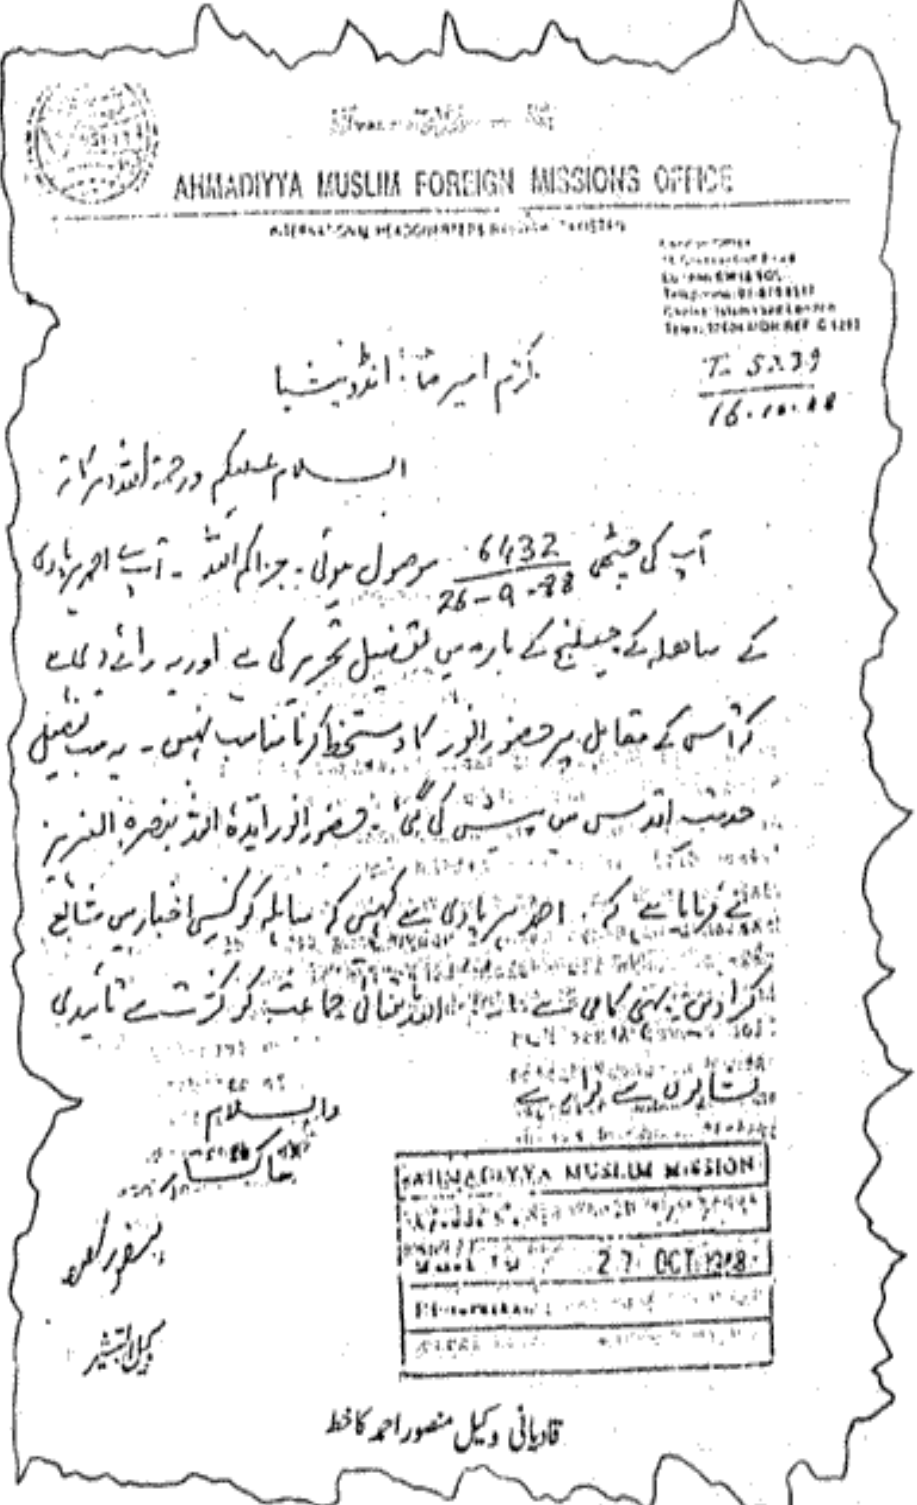 AHMADIYYA MUSLIM FOREIGN MISSIONS OFFICE
INTERNATIONAL HEADQUARTERS RABWAH PAKISTAN
London Office
16 Gressenhall Road
London SW18 5QL
مکرم امیر صاحب انڈونیشیا
T- 5239
16.10.88
السلام علیکم ورحمۃ اللہ وبرکاتہ
آپ کی چٹھی 6432 / 26-9-88 موصول ہوئی۔ جزاکم اللہ ۔ آپ نے احمد ہریادی
کے مباھلہ کے چیلنج کے بارہ میں تفصیل تحریر کی ہے اور یہ رائے دی ہے
کہ اس کے مقابل پر حضور انور کا دستخط کرنا مناسب نہیں ۔ یہ سب تفصیل
خدمت اقدس میں پیش کی گئی ۔ حضور انور ایدہ اللہ بنصرہ العزیز
نے فرمایا ہے کہ احمد ہریادی سے کہیں کہ مباہلہ کو کسی اخبار میں شائع
کرا دیں یہی کافی ہے ۔ اللہ تعالیٰ جماعت کو کثرت سے تائیدی
نشانوں سے نوازے
والسلام
خاکسار
منصور احمد
وکیل التبشیر
AHMADIYYA MUSLIM MISSION
27 OCT 1988
قادیانی وکیل منصور احمد کا خط